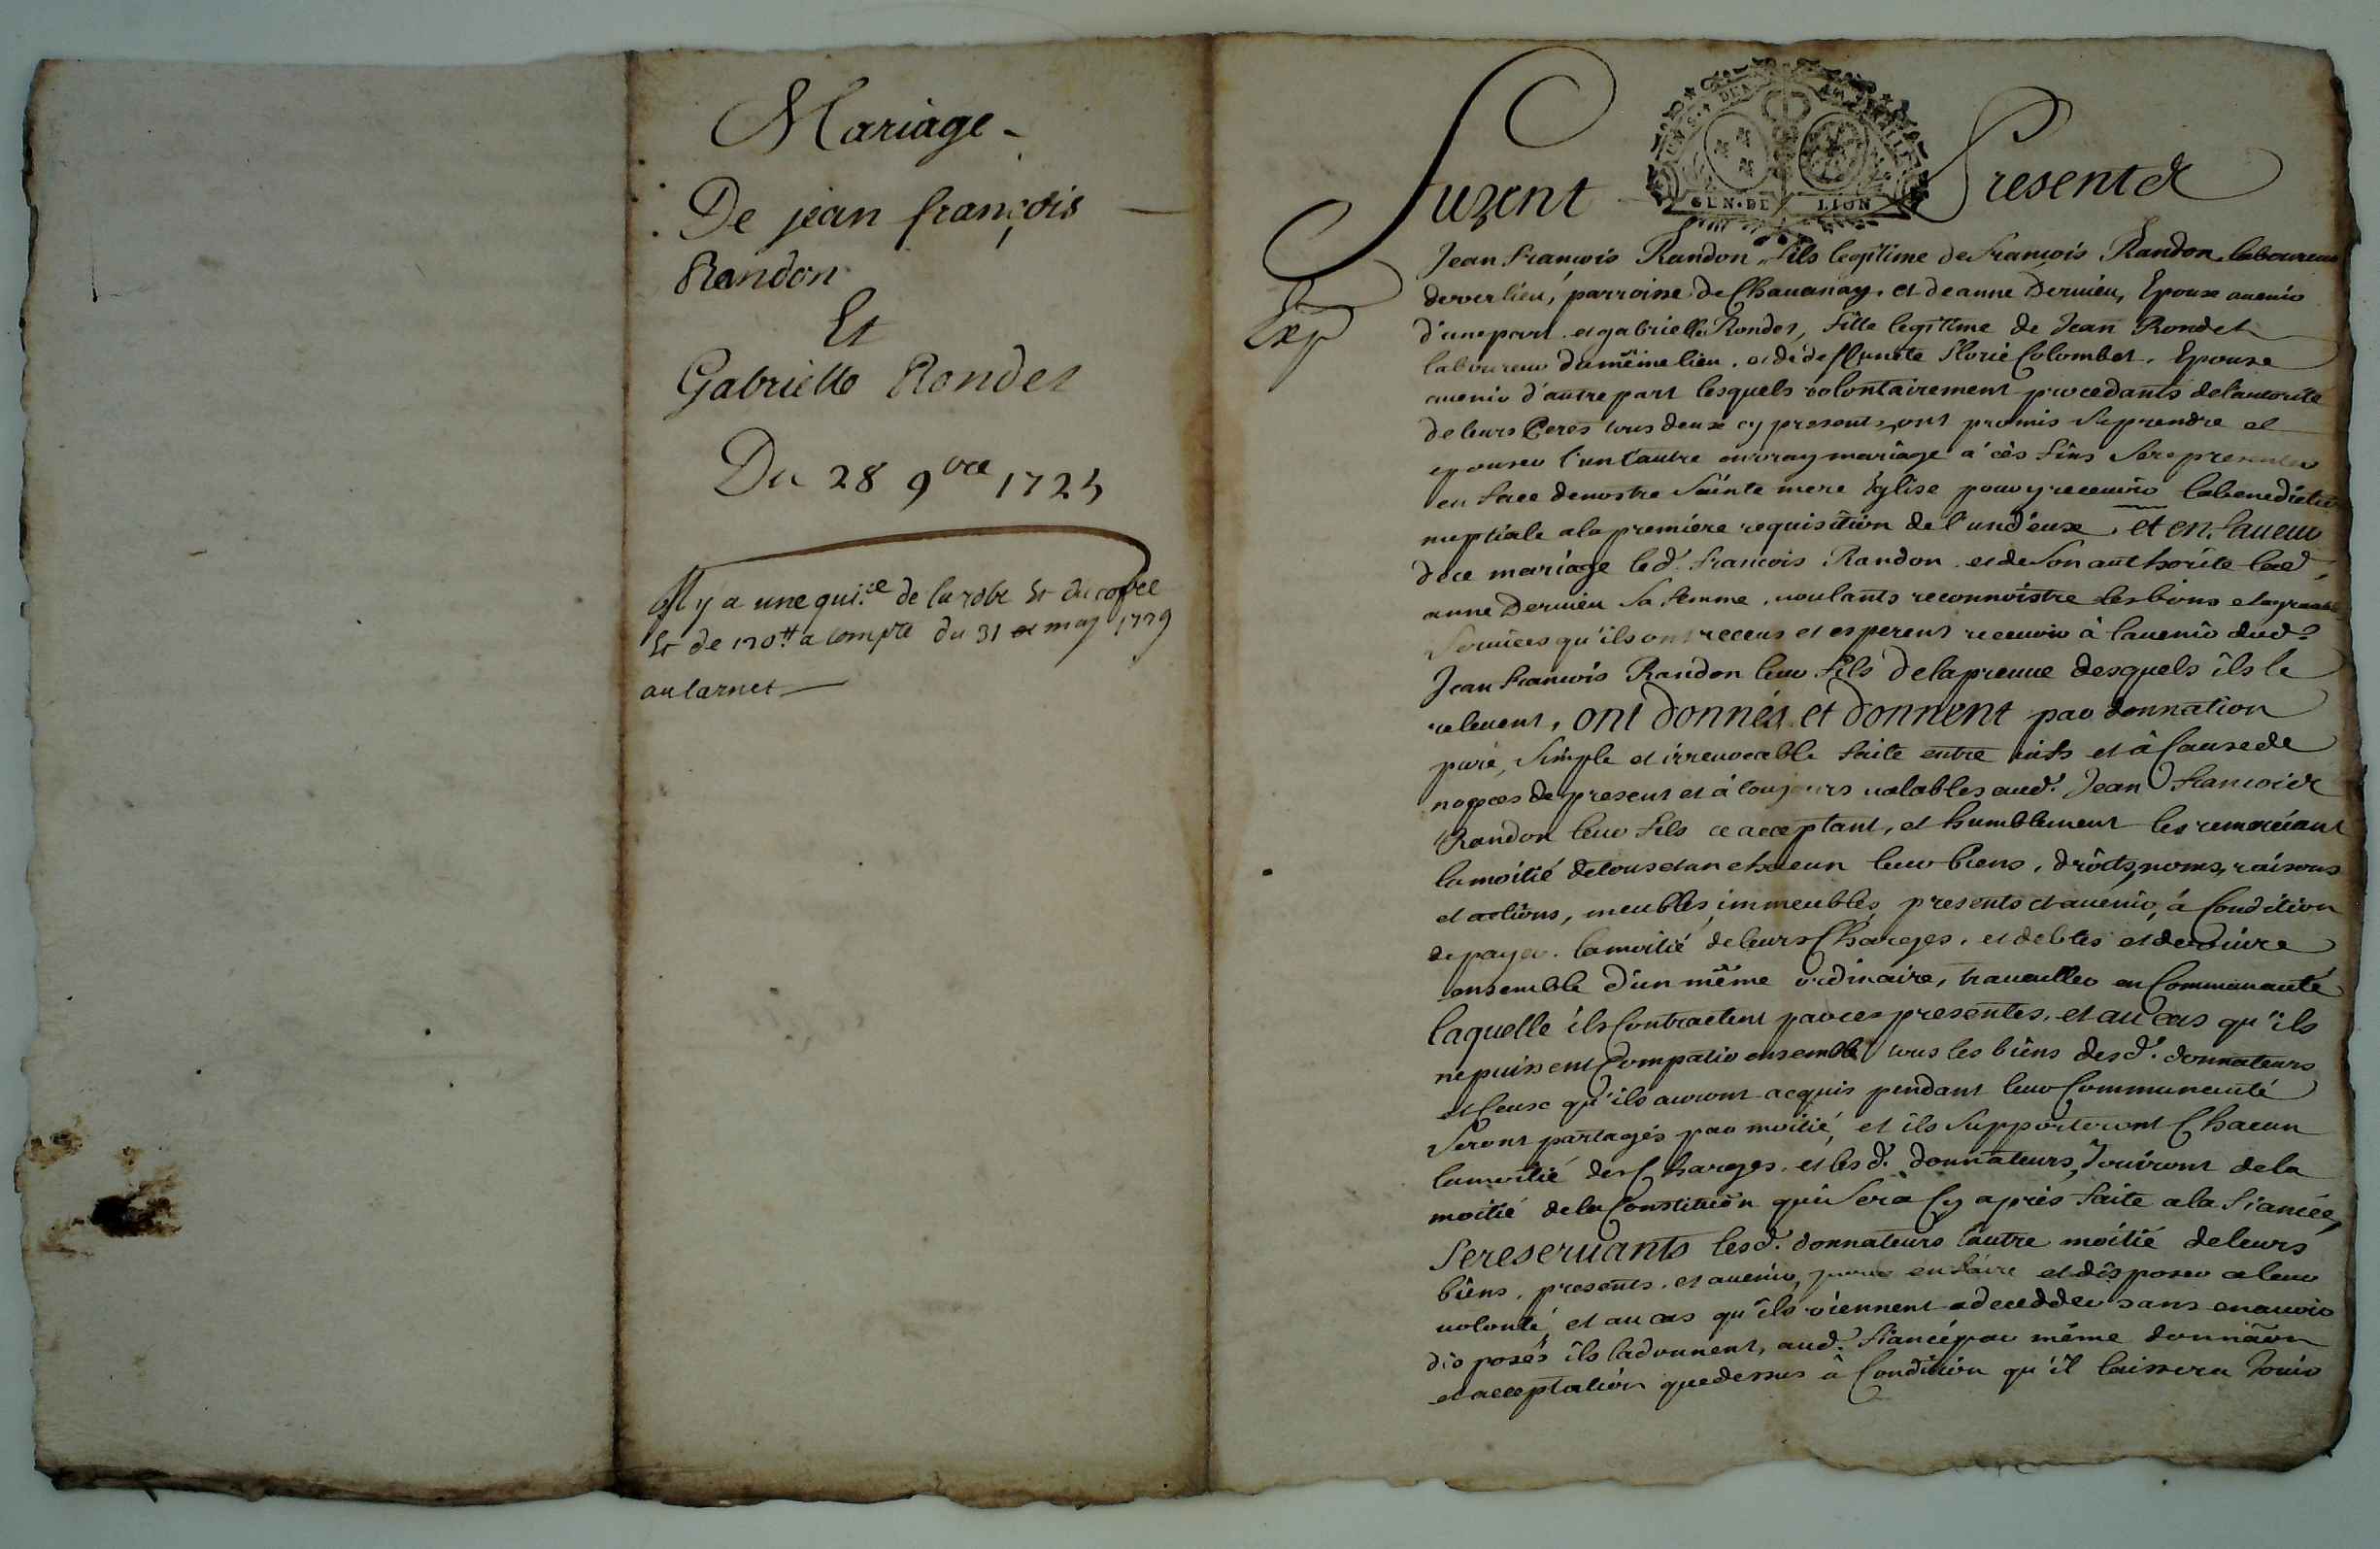 Mariage -
De jean françois
Randon
Et
Gabrielle Rondet
Du 28 9bre 1725
Il y a une qui.ce de la robe Et du coffre
Et de 120# a compte du 31 may 1729
au carnet
Exp
Furent Presentes
GEN·DE LION
Jean francois Randon, fils legitime de francois Randon laboureur
de verlieu, parroisse de Chauanay, et de anne Deruieu, Epoux auenir
d'une part. et gabrielle Rondet, fille legitime de Jean Rondet
laboureur du même lieu. et de deffuncte florie Colombet, Epouse
auenir d'autre part lesquels volontairement procedants de l'autorité
de leurs Peres tous deux cy presents, ont promis se prendre et
epouser l'un l'autre en vray mariage à cès fins se representer
en face de nostre Sainte mere Eglise pour y receuoir la benedictiõ
nuptiale a la premiere requisition de l'un d'eux, et en faueur
de ce mariage led. francois Randon et de son authorite lad.
anne Deruieu sa femme, uoulants reconnoistre les bons et agreables
seruices qu'ils ont receus et esperent receuoir à lauenir dud.
Jean francois Randon leur fils de la preuue desquels ils le
releuent, ont donnés et donnent par donnation
pure, simple et irreuocable faite entre uifs et à Cause de
nopces de present et à toujours ualables aud. Jean francois
Randon leur fils ce acceptant, et humblement les remerciant
la moitié de tous et un chacun leur biens, droits, noms, raisons
et actions, meubles, immeubles presents et auenir, à Condition
de payer la moitié de leurs Charges, et debtes et de viure
ensemble d'un même ordinaire, trauailler en Communauté
laquelle ils Contractent par ces presentes, et au cas qu'ils
ne puissent Compatir ensemble tous les biens desd. donnateurs
et Ceux qu'ils auront acquis pendant leur Communauté
seront partagés par moitié, et ils supporteront Chacun
la moitié des Charges, et lesd. donnateurs, Jouiront de la
moitié de la Constitution qui sera Cy après faite a la fiancée,
se reseruants lesd. donnateurs l'autre moitié de leurs
biens, presents, et auenir, pour en faire et disposer a leur
uolonté, et au cas qu'ils viennent a decedder sans en auoir
disposés ils la donnent, aud. fiancé par même donnaõn
et acceptation que dessus à Condition qu'il laissera Jouir